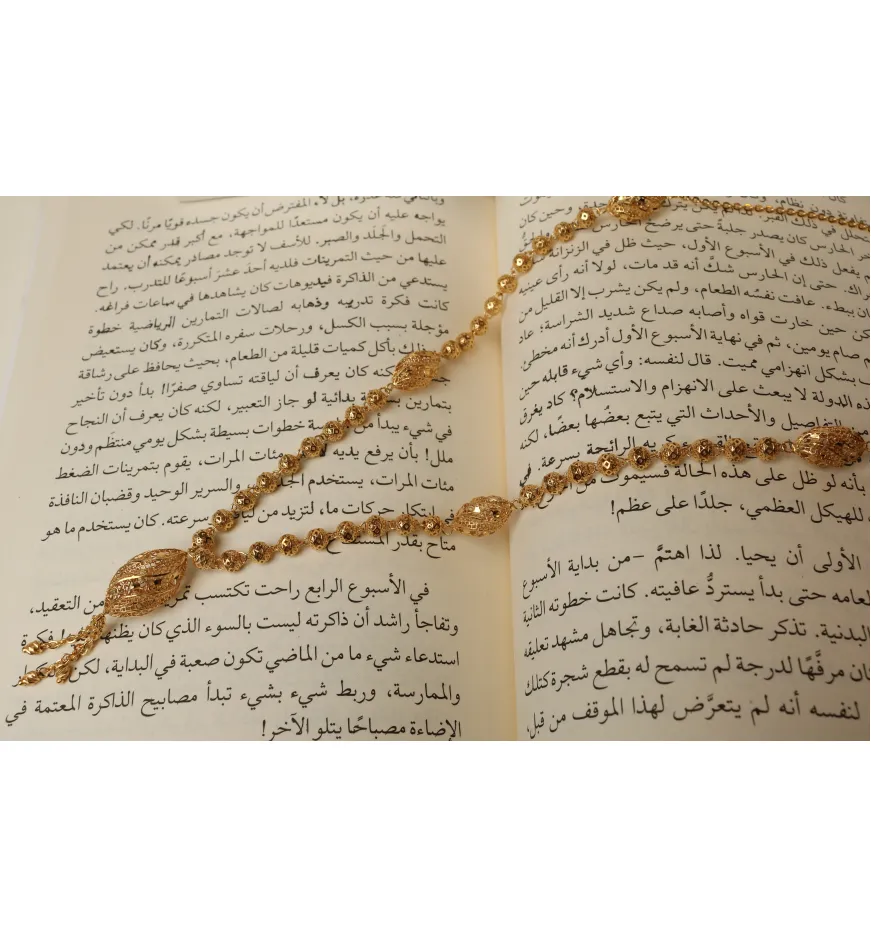 كان
تكون نظام،
لحارس كان يصدر جلبةً حتى يرضخ الحارس
م يفعل ذلك في الأسبوع الأول، حيث ظل في الزنزانة
راك. حتى إن الحارس شكَّ أنه قد مات، لولا أنه رأى عينيه
ان ببطء. عافت نفسُه الطعام، ولم يكن يشرب إلا القليل من
كن حين خارت قواه وأصابه صداع شديد الشراسة؛ عاد
م صام يومين، ثم في نهاية الأسبوع الأول أدرك أنه مخطئ،
ف بشكل انهزامي مميت. قال لنفسه: وأي شيء قابله حين
ذه الدولة لا يبعث على الانهزام والاستسلام؟ كاد يغرق
التفاصيل والأحداث التي يتبع بعضُها بعضًا، لكنه
الرائحة بسرعة. في
بأنه لو ظل على هذه الحالة فسيموت من
للهيكل العظمي، جلدًا على عظم!
الأولى أن يحيا. لذا اهتمَّ –من بداية الأسبوع
لعامه حتى بدأ يستردُّ عافيته. كانت خطوته الثانية
البدنية. تذكر حادثة الغابة، وتجاهل مشهد تعليقه
كان مرفَّهًا لدرجة لم تسمح له بقطع شجرة كتلك
لنفسه أنه لم يتعرَّض لهذا الموقف من قبل،
بل لا، المفترض أن يكون جسده قويًا مرنًا. لكي
يواجه عليه أن يكون مستعدًا للمواجهة، مع أكبر قدر ممكن من
التحمل والجَلَد والصبر. للأسف لا توجد مصادر يمكنه أن يعتمد
عليها من حيث التمرينات فلديه أحدَ عشرَ أسبوعًا للتدرب. راح
يستدعي من الذاكرة فيديوهات كان يشاهدها في ساعات فراغه.
كانت فكرة تدريبه وذهابه لصالات التمارين الرياضية خطوة
مؤجلة بسبب الكسل، ورحلات سفره المتكررة، وكان يستعيض
ذلك بأكل كميات قليلة من الطعام، بحيث يحافظ على رشاقة
لكنه كان يعرف أن لياقته تساوي صفرًا! بدأ دون تأخير
بتمارين بدائية لو جاز التعبير، لكنه كان يعرف أن النجاح
في شيء يبدأ من خطوات بسيطة بشكل يومي منتظَم ودون
ملل! بأن يرفع يديه مئات المرات، يقوم بتمرينات الضغط
مئات المرات، يستخدم والسرير الوحيد وقضبان النافذة
في ابتكار حركات ما، لتزيد من سرعته. كان يستخدم ما هو
متاح بقدر
في الأسبوع الرابع راحت تكتسب من التعقيد،
وتفاجأ راشد أن ذاكرته ليست بالسوء الذي كان يظنه فكرة
استدعاء شيء ما من الماضي تكون صعبة في البداية، لكن
والممارسة، وربط شيء بشيء تبدأ مصابيح الذاكرة المعتمة في
الإضاءة مصباحًا يتلو الآخر!